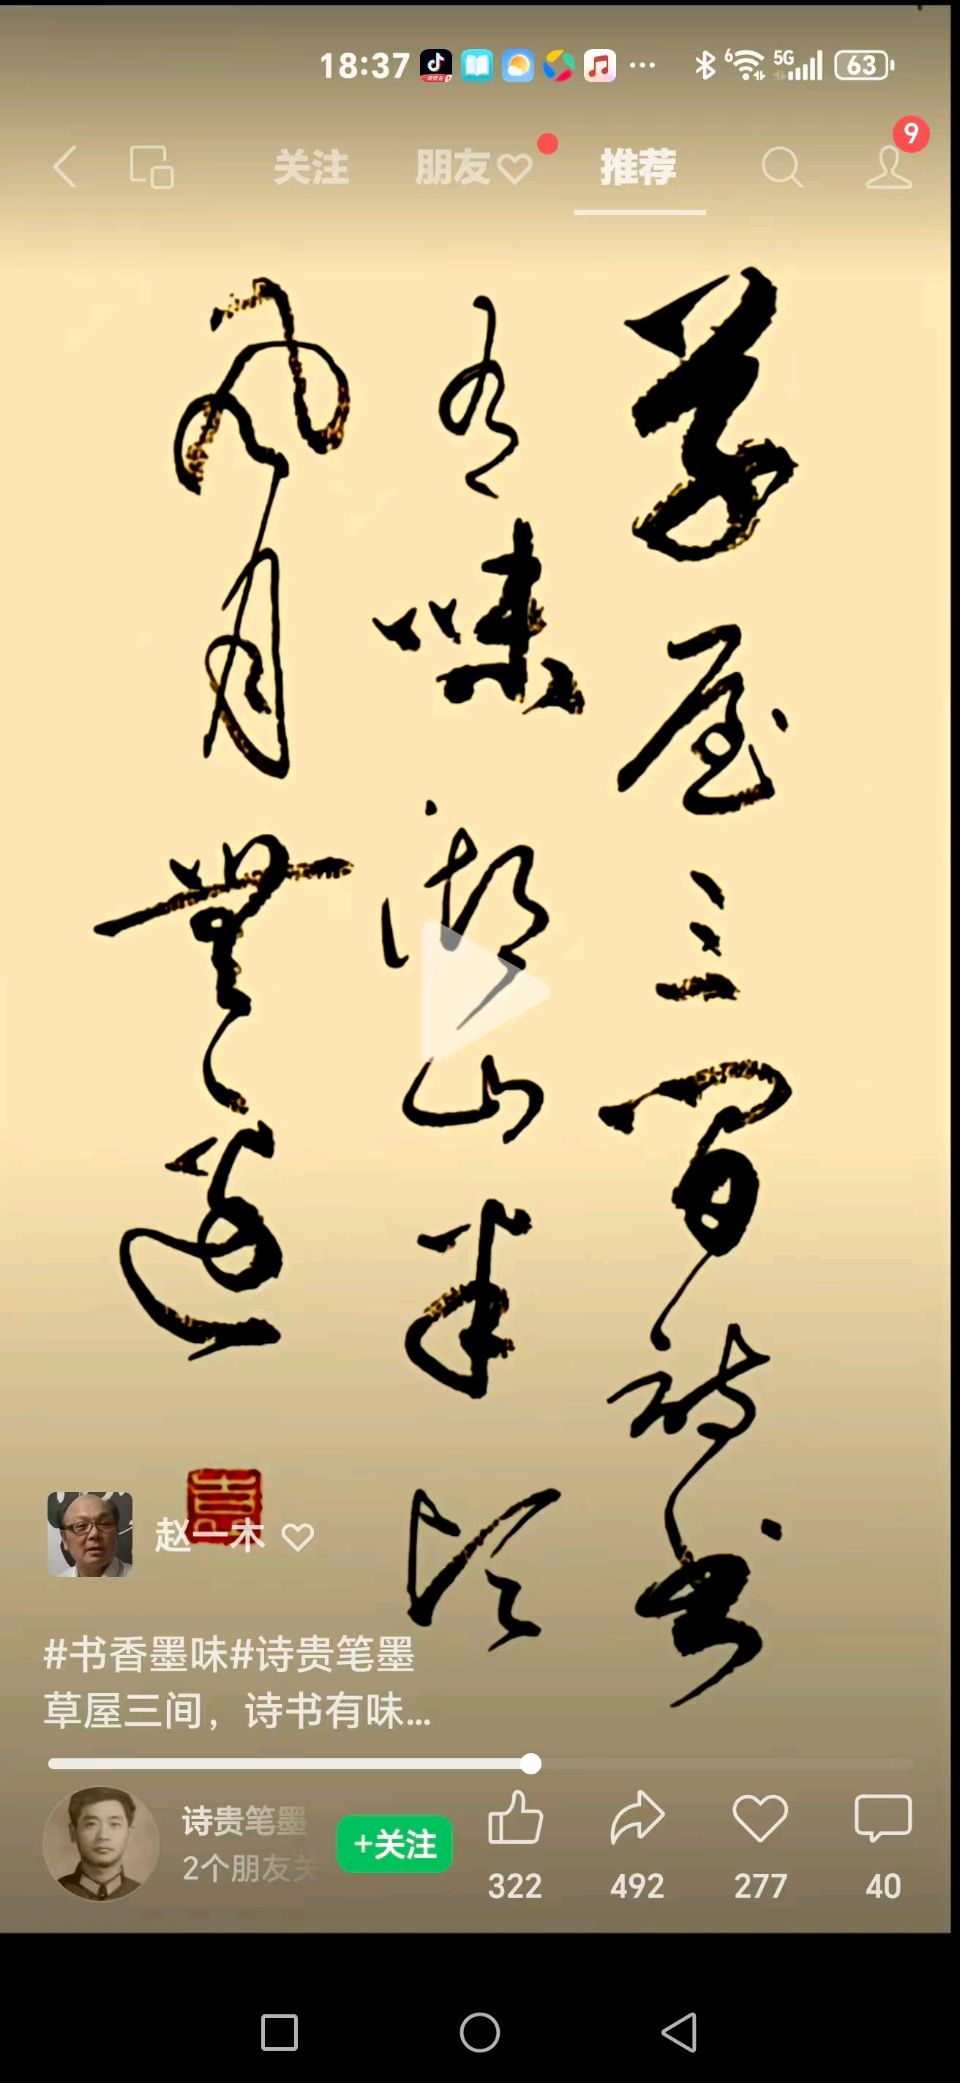 18:37
6
5G
63
关注
朋友
推荐
9
草屋三间诗书
有味湖山半顷
风月无边
赵一木
#书香墨味#诗贵笔墨
草屋三间，诗书有味...
诗贵笔墨
2个朋友关
+关注
322
492
277
40